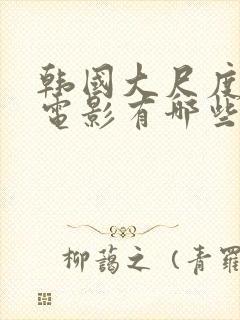 韩國大尺度
電影有哪些
柳藹之（青羅